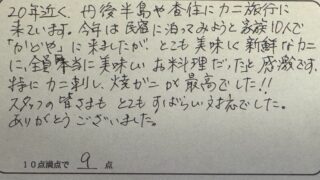 20年近く、丹後半島や香住にカニ旅行に
来ています。今年は民宿に泊ってみようと家族10人で
「かどや」に来ましたが、とても美味しく新鮮なカニ
に、全員本当に美味しいお料理だったと感激です。
特にカニ刺し、焼ガニが最高でした!!
スタッフの皆さまもとてもすばらしい対応でした。
ありがとうございました。
10点満点で 9 点